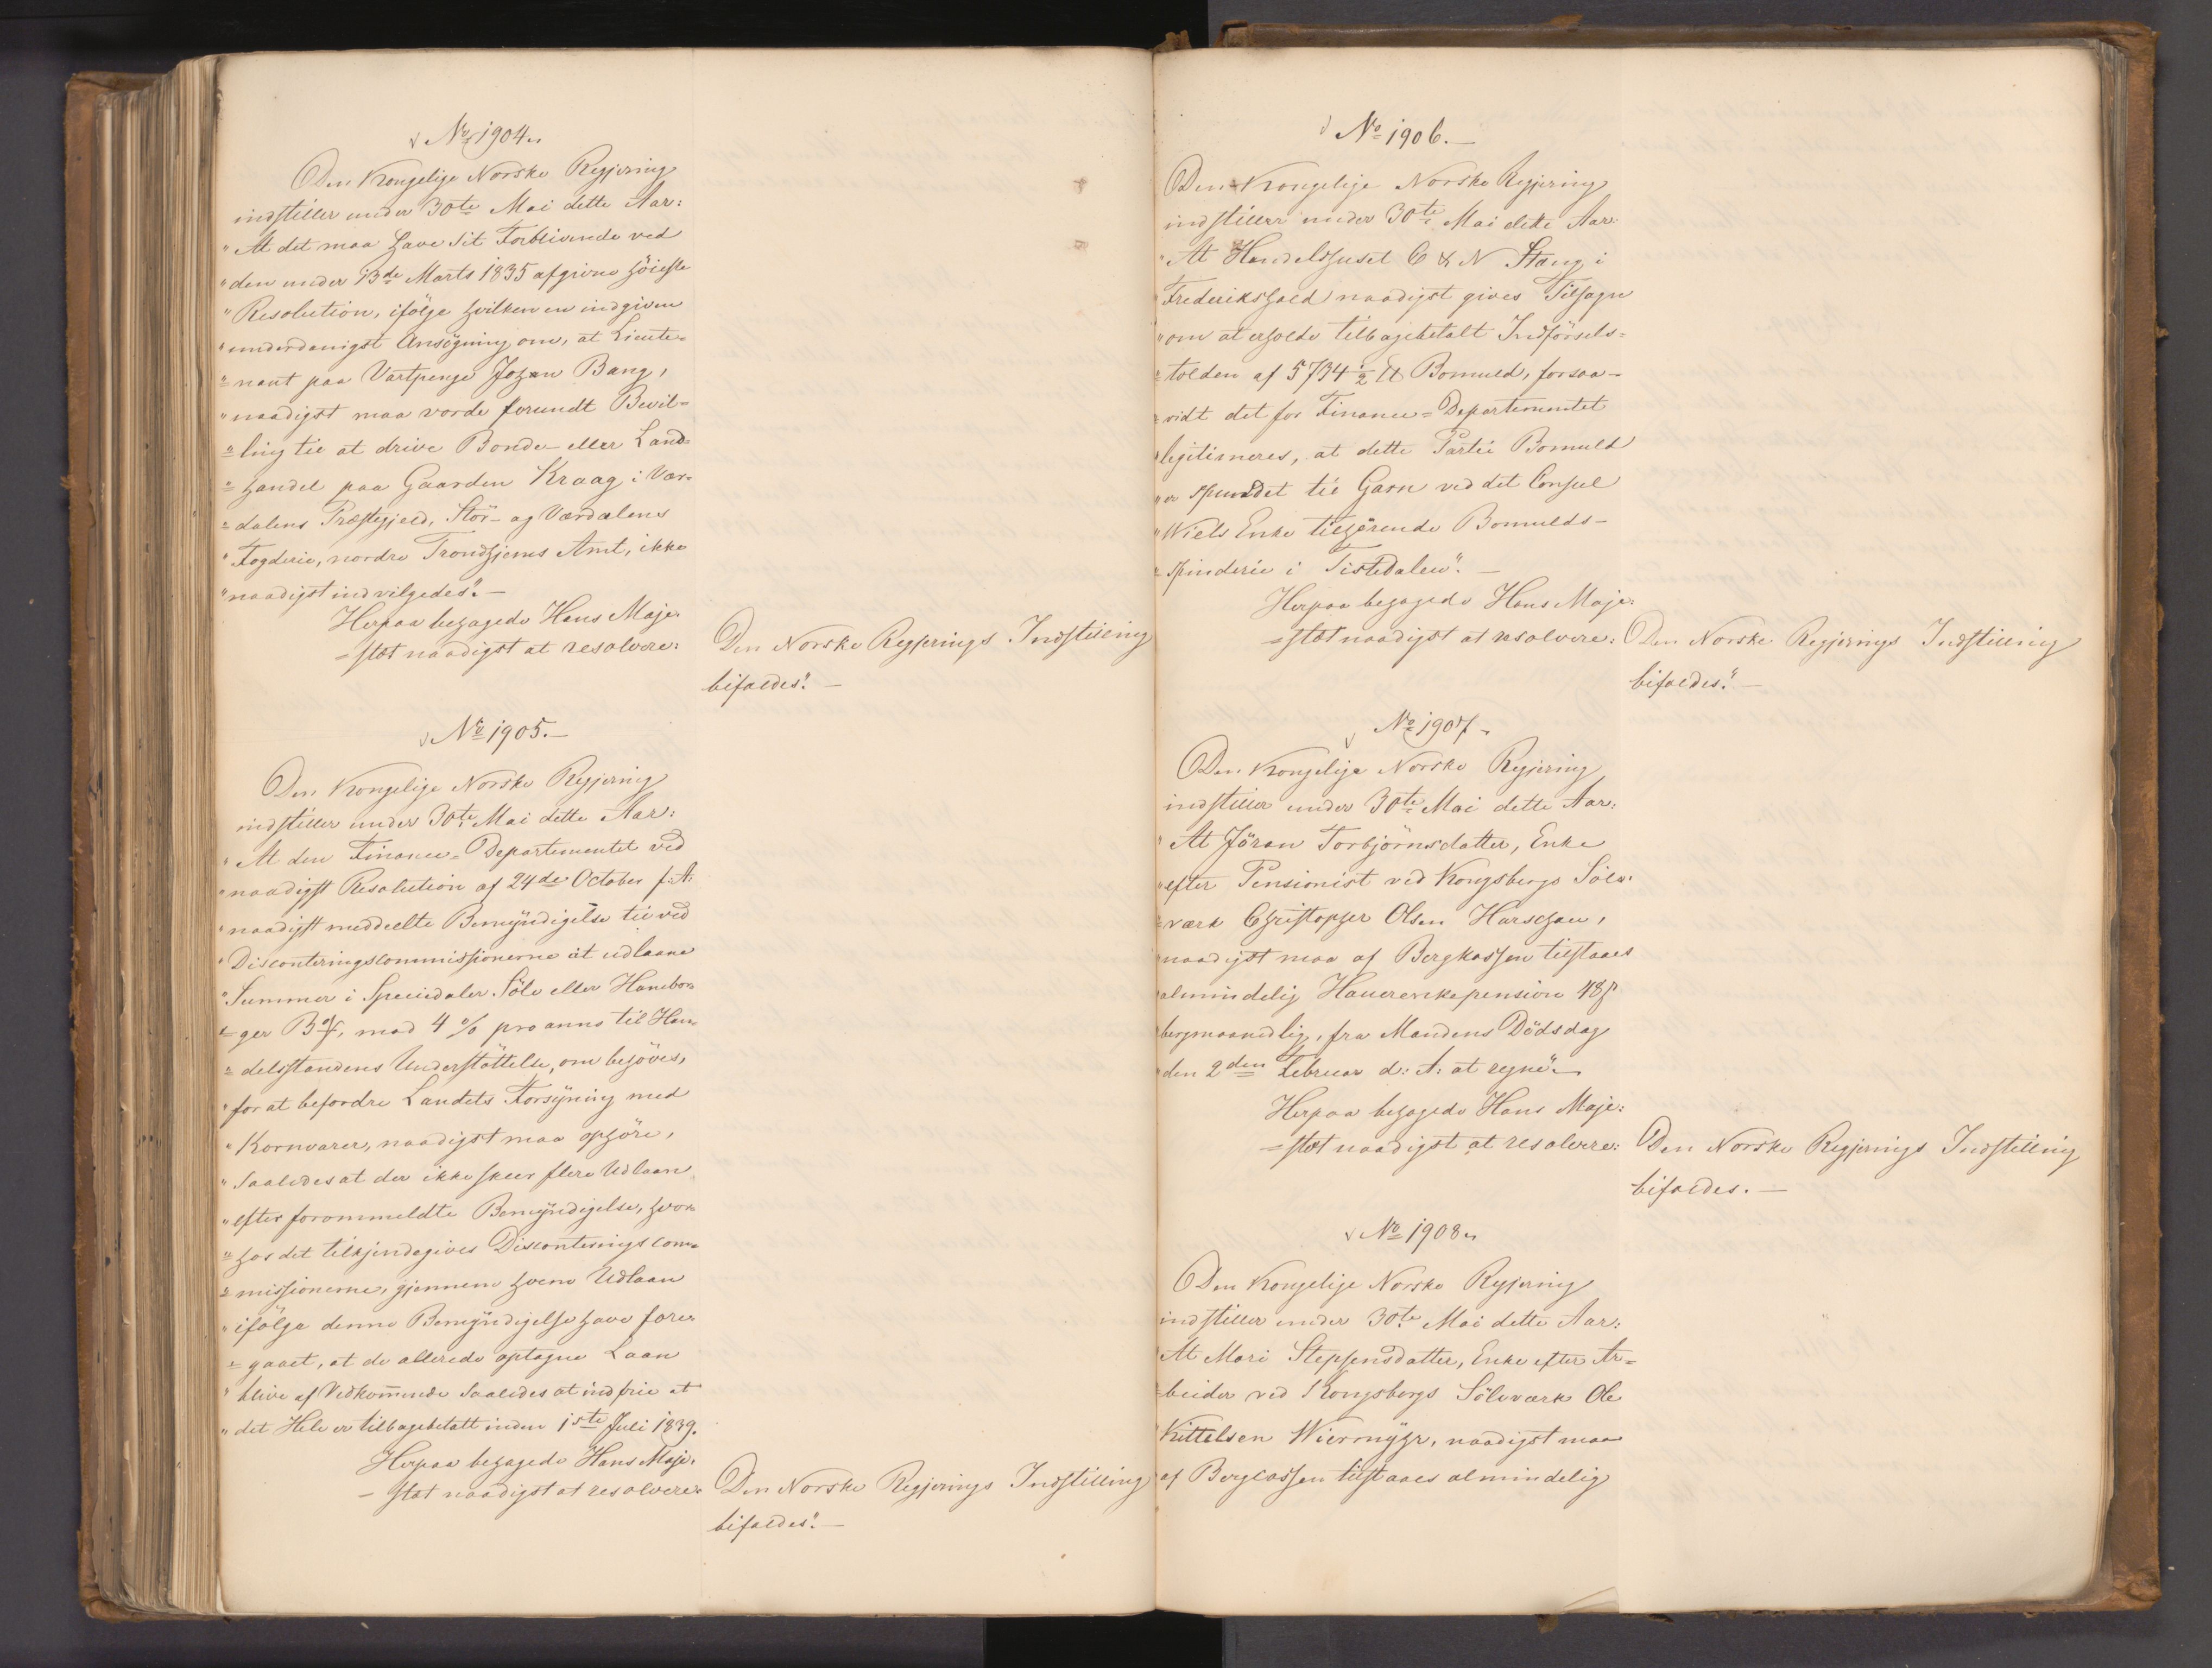 No 1904.
Den Kongelige Norske Regjering
indstiller under 30te Mai dette Aar:
"At det maa have sit Forblivende ved
"den under 13de Marts 1835 afgivne höieste
"Resolution, ifölge hvilken en indgiven
"underdanigst Ansögning om, at Lieute-
"nant paa Vartpenge Johan Bang,
"naadigst maa vorde forundt Bevil-
"ling til at drive Bonde- eller Land-
"handel paa Gaarden Kraag i Vær-
"dalens Præstegjeld, Stör- og Værdalens
"Fogderie, nordre Trondhjems Amt, ikke
"naadigst indvilgedes". —
Herpaa behagede Hans Maje-
-stæt naadigst at resolvere:
Den Norske Regjerings Indstilling
bifaldes". —
No 1905. —
Den Kongelige Norske Regjering
indstiller under 30te Mai dette Aar:
"At den Finance-Departementet ved
"naadigst Resolution af 24de October f: A:
"naadigst meddeelte Bemÿndigelse til ved
"Disconteringscommissionerne at udlaane
"Summer i Speciedaler Sölv eller Hambor-
"ger Bco, mod 4 % pro anno til Han-
"delsstandens Understöttelse, om behöves,
"for at befordre Landets Forsÿning med
"Kornvarer, naadigst maa ophöre,
"saaledes at der ikke skeer flere Udlaan
"efter forommeldte Bemÿndigelse, hvor-
"hos det tilkjendegives Disconteringscom-
"missionerne, gjennem hvem Udlaan
"ifölge denne Bemÿndigelse have fore-
"gaaet, at de allerede optagne Laan
"blive af Vedkommende saaledes at indfrie at
"det Hele er tilbagebetalt inden 1ste Juli 1839.
Herpaa behagede Hans Maje-
-stæt naadigst at resolvere:
Den Norske Regjerings Indstilling
bifaldes". —
No 1906. —
Den Kongelige Norske Regjering
indstiller under 30te Mai dette Aar:
"At Handelshuset C & N Stang i
"Frederikshald naadigst gives Tilsagn
"om at erholde tilbagebetalt Indförsels-
"tolden af 5734 1/2 ℔ Bomuld, forsaa-
"vidt det for Finance-Departementet
"legitimeres, at dette Partie Bomuld
"er spundet til Garn ved det Consul
"Wiels Enke tilhörende Bomulds-
"spinderie i Tistedalen". —
Herpaa behagede Hans Maje-
-stæt naadigst at resolvere:
Den Norske Regjerings Indstilling
bifaldes". —
No 1907.
Den Kongelige Norske Regjering
indstiller under 30te Mai dette Aar:
"At Jöran Torbjörnsdatter, Enke
"efter Pensionist ved Kongsbergs Sölv-
"værk Christopher Olsen
"naadigst maa af Bergkassen tilstaaes
"almindelig Hauerenkepension
"bergmaanedlig, fra Mandens Dödsdag
"den 2den Februar d: A: at regne". —
Herpaa behagede Hans Maje-
-stæt naadigst at resolvere:
Den Norske Regjerings Indstilling
bifaldes. —
No 1908.
Den Kongelige Norske Regjering
indstiller under 30te Mai dette Aar:
"At Mari Stephensdatter, Enke efter Ar-
"beider ved Kongsbergs Sölvværk Ole
"Kittelsen Wiermÿhr, naadigst maa
af Bergcassen tilstaaes almindelig